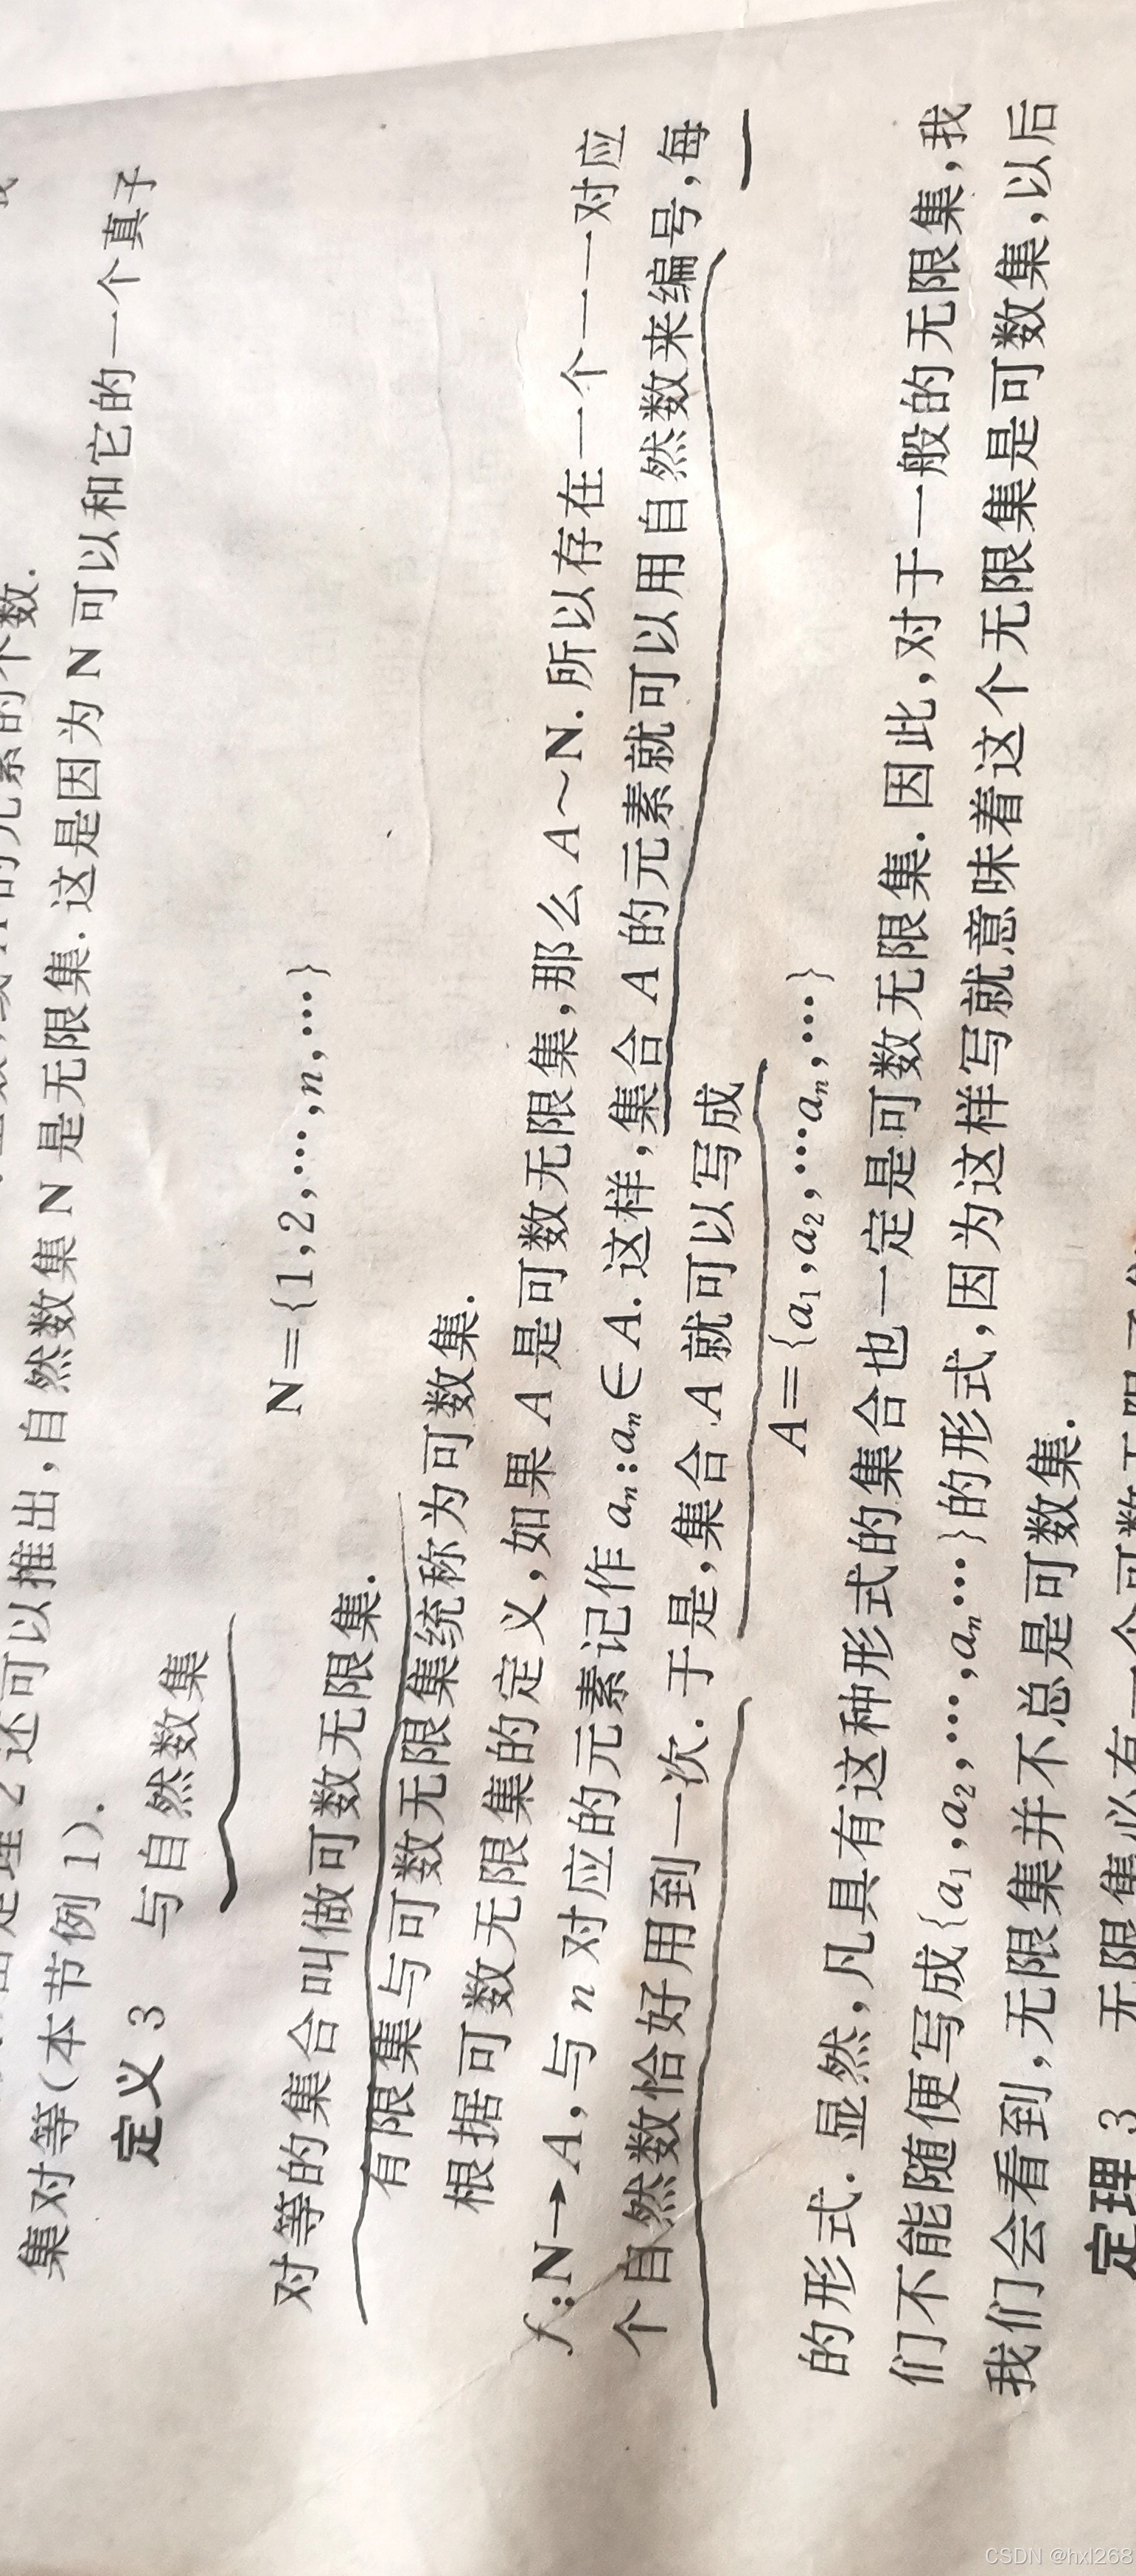 的元素的个数.
理2还可以推出,自然数集 N 是无限集.这是因为 N 可以和它的一个真子
集对等(本节例1).
定义3 与自然数集
N={1,2,…,n,…}
对等的集合叫做可数无限集.
有限集与可数无限集统称为可数集.
根据可数无限集的定义,如果 A 是可数无限集,那么 A～N.所以存在一个一一对应
f:N→A,与 n 对应的元素记作 aₙ:aₙ∈A.这样,集合 A 的元素就可以用自然数来编号,每
个自然数恰好用到一次.于是,集合 A 就可以写成
A={a₁,a₂,…aₙ,…}
的形式.显然,凡具有这种形式的集合也一定是可数无限集.因此,对于一般的无限集,我
们不能随便写成{a₁,a₂,…,aₙ…}的形式,因为这样写就意味着这个无限集是可数集,以后
我们会看到,无限集并不总是可数集.
定理3 无限集必有一个可数无限子集
CSDN @hxl268